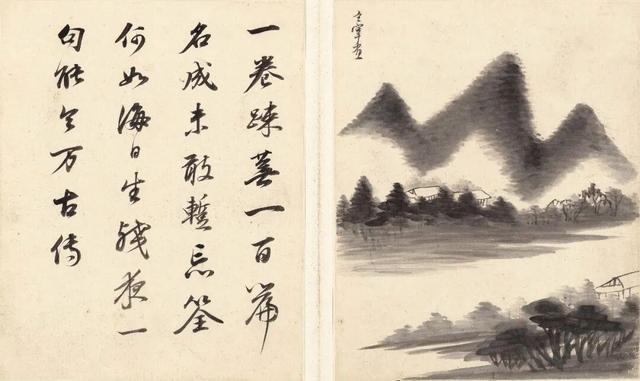 玄宰畫
一卷踈蕪一百篇
名成未敢暫忘筌
何如海日生殘夜一
句能令万古傳